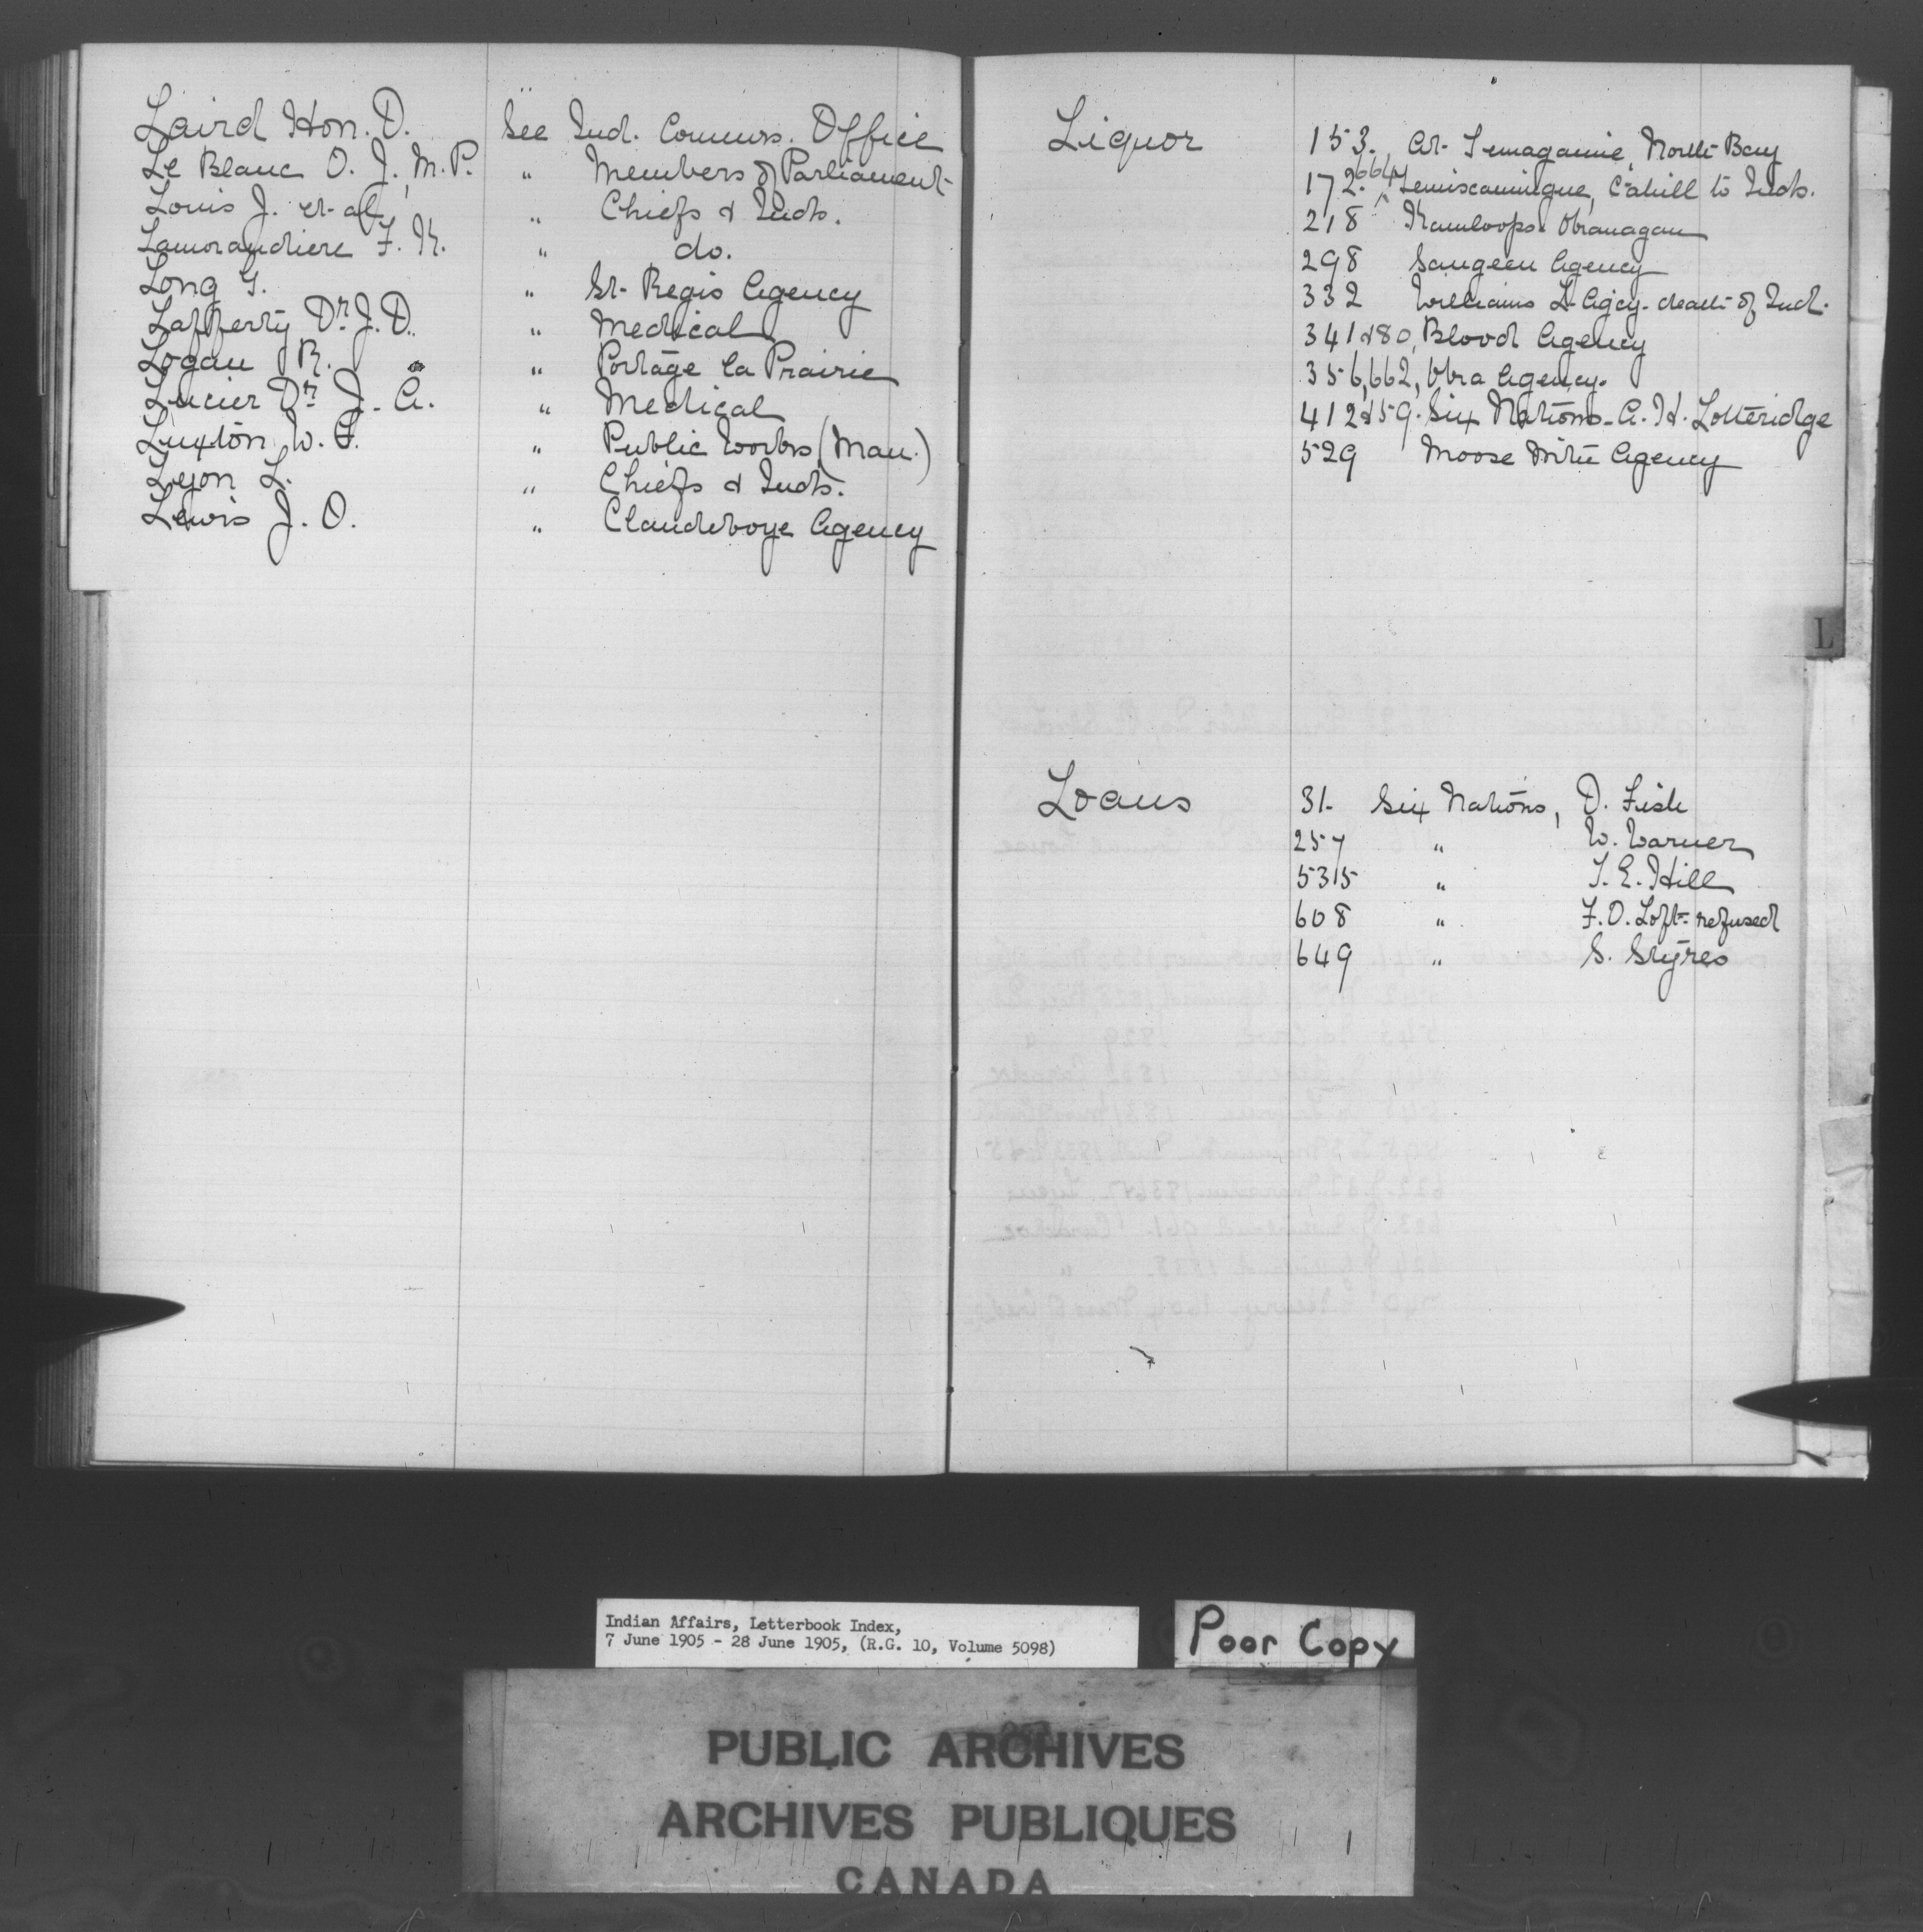 Laird Hon. D. See Ind. Commrs. Office
Le Blanc O. J., M.P. " Members of Parliament
Louis J. et al " Chiefs & Inds.
Lamorandiere F. K. " do.
Long G. " St. Regis Agency
Lafferty Dr. J. D. " Medical
Logan R. " " Portage la Prairie
Lucier Dr. J. A. " Medical
Luxton W. F. " Public Works (Man.)
Lyon L. " Chiefs & Inds.
Lewis J. O. " Clandeboye Agency
Liquor 153. At Temagamie, North Bay
172. 664 Temiscamingue, Cahill to Inds.
218 Kamloops Okanagan
298 Saugeen Agency
332 Williams L. Agcy. death of Ind.
341 & 80, Blood Agency
356, 662, Obra Agency.
412 & 59. Six Nations - A. H. Lotteridge
529 Moose Mtn Agency
L
Loans 31. Six Nations, D. Fish
257 " W. Warner
535 " T. E. Hill
608 " F. O. Loft - refused
649 " S. Styres
Indian Affairs, Letterbook Index,
7 June 1905 - 28 June 1905, (R.G. 10, Volume 5098)
Poor Copy
PUBLIC ARCHIVES
ARCHIVES PUBLIQUES
CANADA